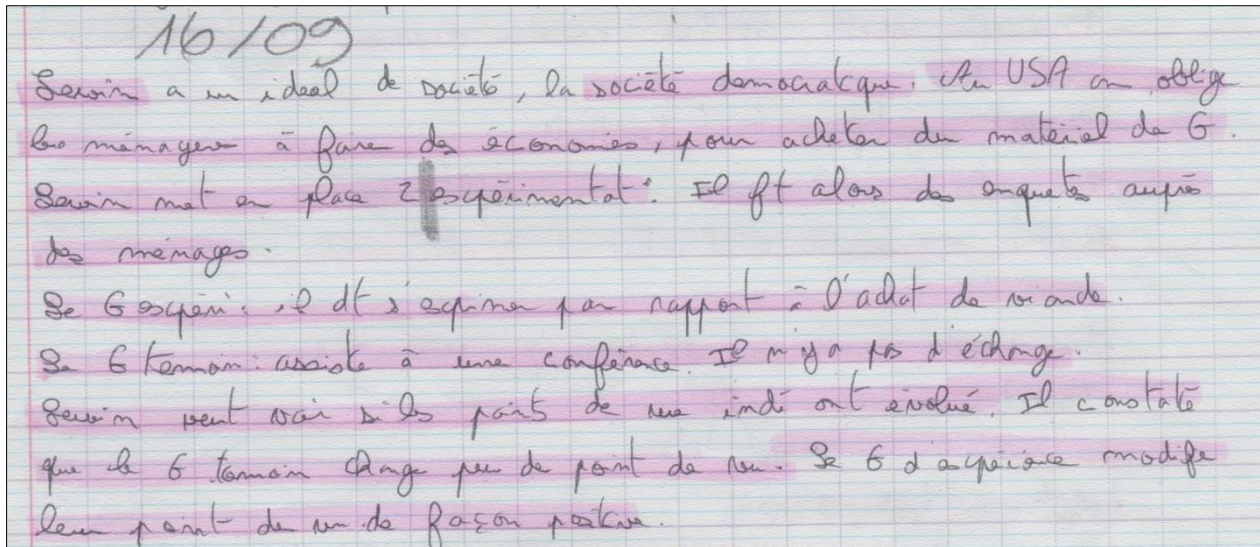 16/09
Lewin a un idéal de société, la société démocratique. Au USA on oblige
les ménagere à faire des économies, pour acheter du matériel de G.
Lewin met en place 2 expérimentat°. Il ft alors des enquets auprès
des ménages.
Le G expéri: il dt s'exprimer par rapport à l'achat de viande.
Le G temoin: assiste à une conférence. Il n'y a pas d'échange.
Lewin veut voir si les points de vue indi ont évolué. Il constate
que le G temoin change peu de point de vu. Le G d'expérience modifie
leur point de vu de façon positive.